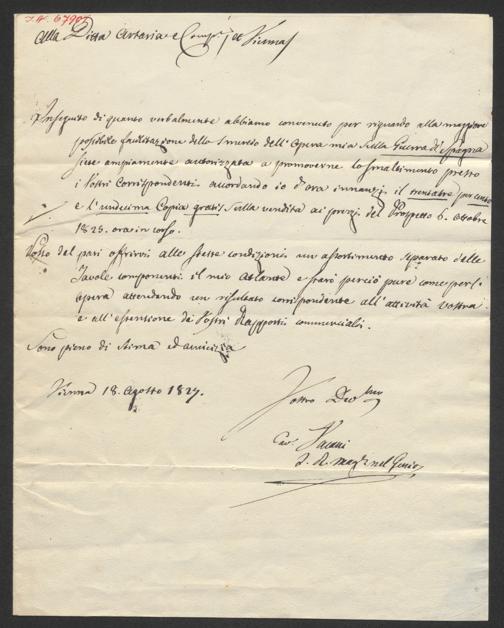 I.N. 67907
Alla Ditta Artaria e Comp.ⁱ di Vienna
Inseguito di quanto verbalmente abbiamo convenuto per riguardo alla maggiore
possibile facilitazione dello smercio dell'Opera mia sulla Guerra di Spagna
siete ampiamente autorizzata a promoverne lo smaltimento presso
i Vostri Corrispondenti accordando io d'ora innanzi il trentatre per cento
e l'undecima Copia gratis sulla vendita ai prezzi del Prospetto 6. Ottobre
1825. ora in corso.
Posso del pari offrirvi alle stesse condizioni un assortimento separato delle
Tavole componenti il mio Atlante e farò perciò pure come per l'
opera attendendo un risultato corrispondente all'attività vostra
e all'estensione de' Vostri Rapporti commerciali.
Sono pieno di stima ed amicizia
Vienna 18. Agosto 1827.
Vostro Dev.mo
Cav. Vacani
I. R. Magg.e nel Genio